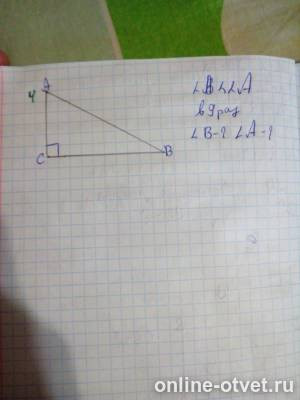 A
4
C
B
∠B<∠A
в 9 раз
∠B-? ∠A-?
online-otvet.ru